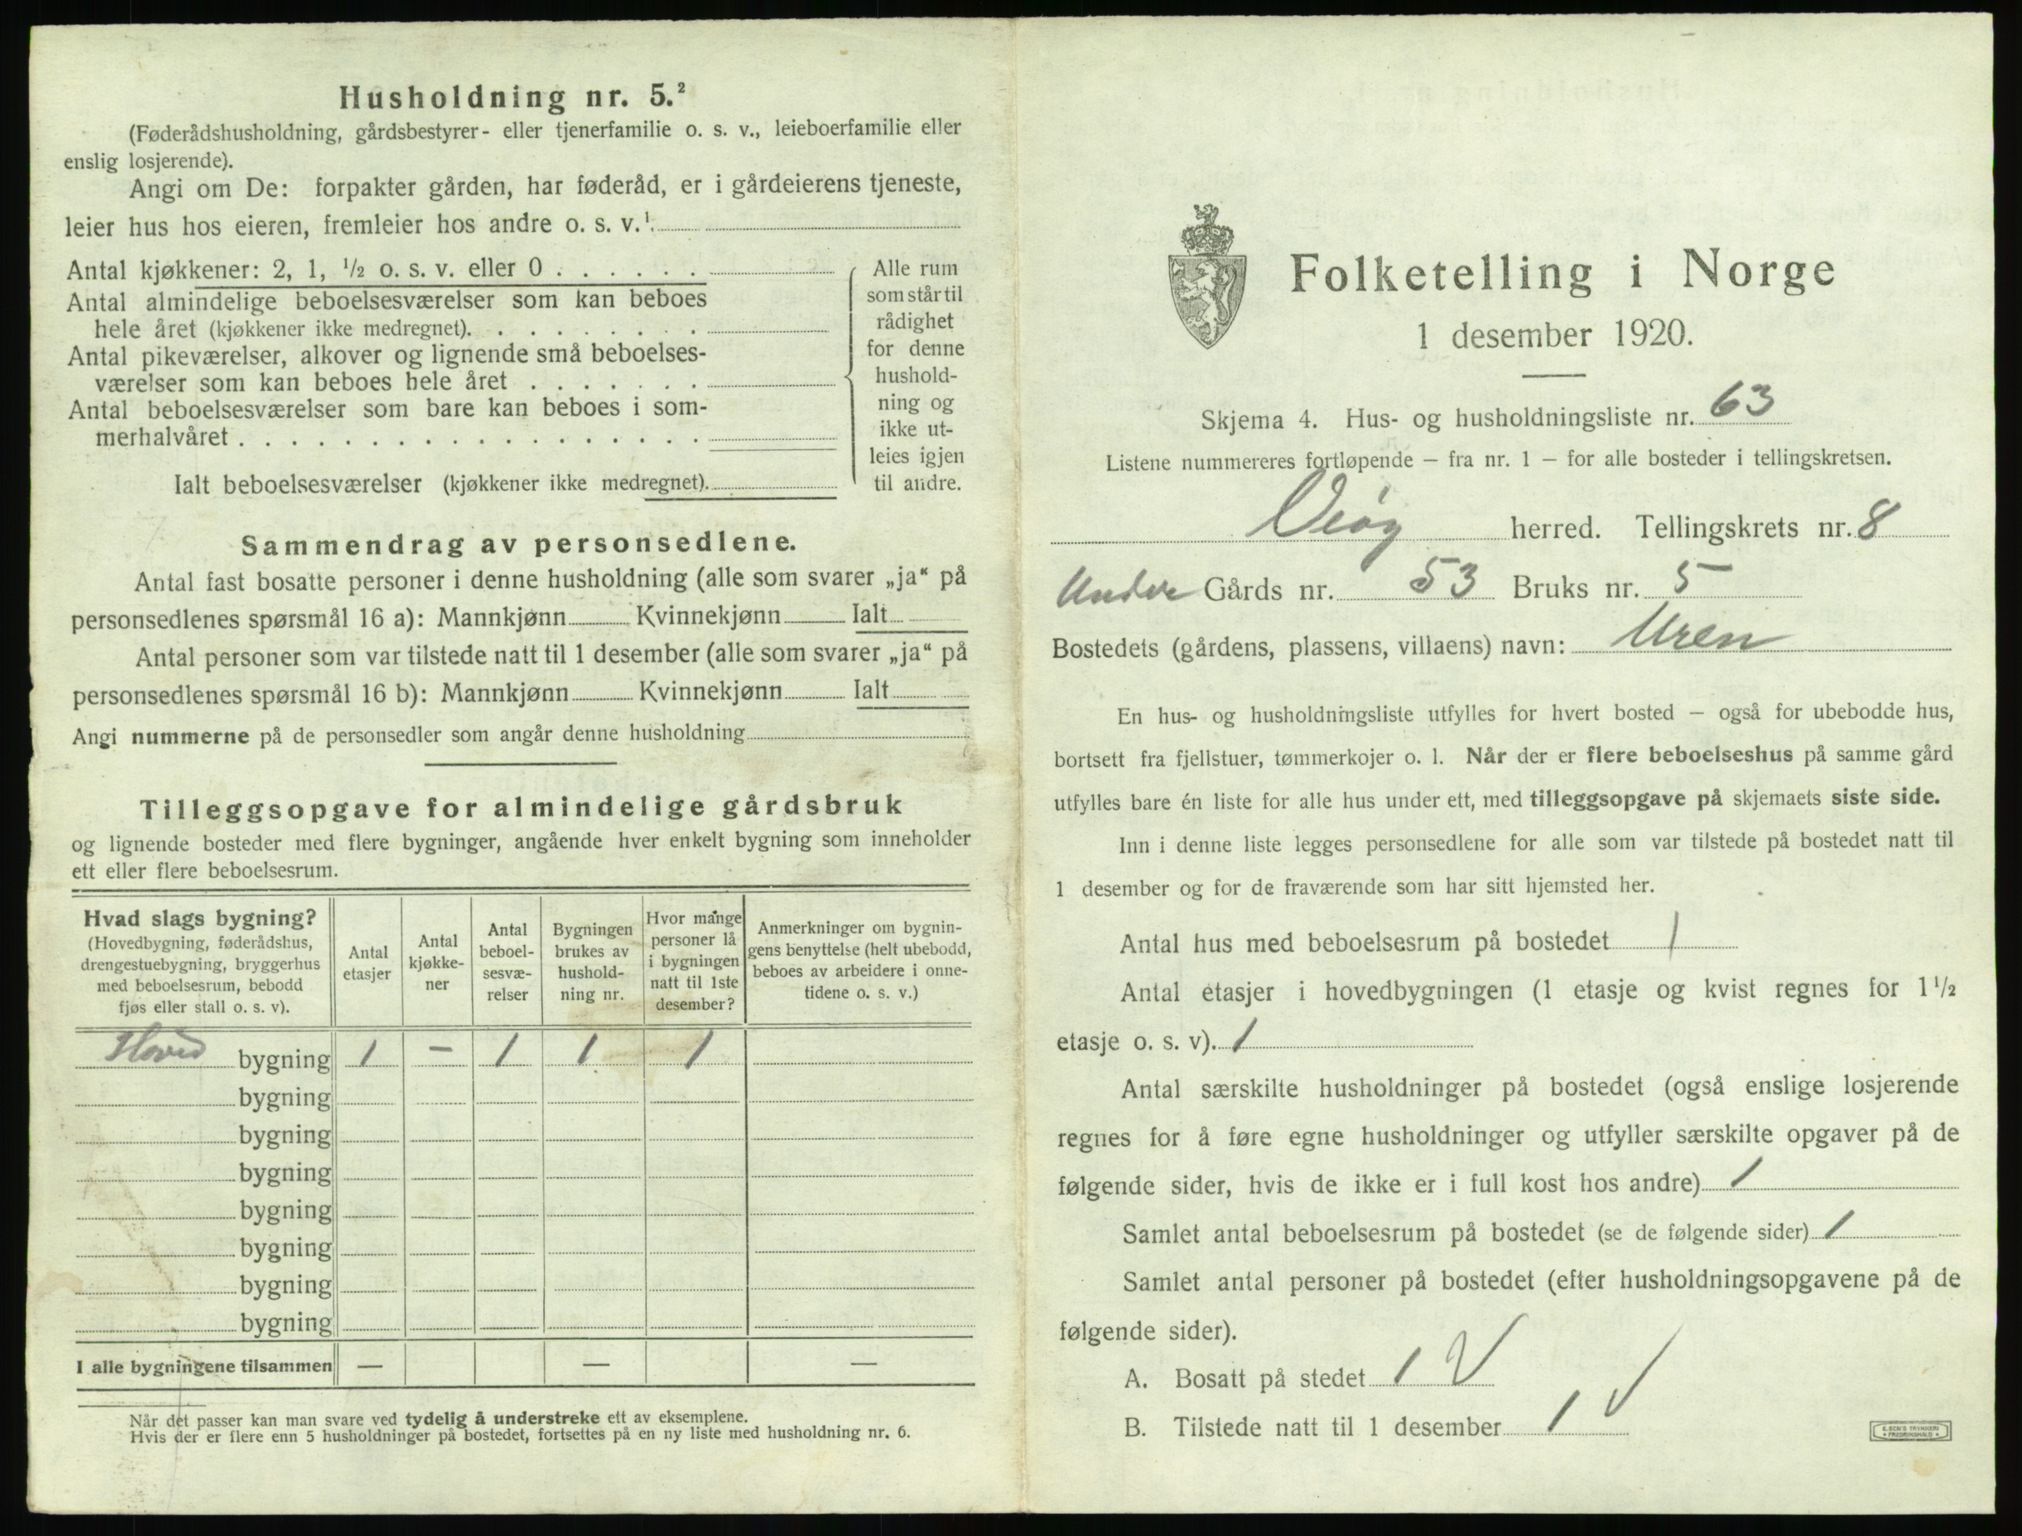 Husholdning nr. 5.²
(Føderådshusholdning, gårdsbestyrer- eller tjenerfamilie o. s. v., leieboerfamilie eller
enslig losjerende).
Angi om De: forpakter gården, har føderåd, er i gårdeierens tjeneste,
leier hus hos eieren, fremleier hos andre o. s. v.¹
Antal kjøkkener: 2, 1, ½ o. s. v. eller 0 . . . . . .
Antal almindelige beboelsesværelser som kan beboes
hele året (kjøkkener ikke medregnet). . . . . . . . .
Antal pikeværelser, alkover og lignende små beboelses-
værelser som kan beboes hele året . . . . . . .
Antal beboelsesværelser som bare kan beboes i som-
merhalvåret . . . . . . . . . . . . . . . . . .
Ialt beboelsesværelser (kjøkkener ikke medregnet).
Alle rum
som står til
rådighet
for denne
hushold-
ning og
ikke ut-
leies igjen
til andre.
Sammendrag av personsedlene.
Antal fast bosatte personer i denne husholdning (alle som svarer „ja“ på
personsedlenes spørsmål 16 a): Mannkjønn Kvinnekjønn Ialt
Antal personer som var tilstede natt til 1 desember (alle som svarer „ja“ på
personsedlenes spørsmål 16 b): Mannkjønn Kvinnekjønn Ialt
Angi nummerne på de personsedler som angår denne husholdning
Tilleggsopgave for almindelige gårdsbruk
og lignende bosteder med flere bygninger, angående hver enkelt bygning som inneholder
ett eller flere beboelsesrum.
Hvad slags bygning?
(Hovedbygning, føderådshus,
drengestuebygning, bryggerhus
med beboelsesrum, bebodd
fjøs eller stall o. s. v).
Antal
etasjer
Antal
kjøkke-
ner
Antal
beboel-
sesvæ-
relser
Bygningen
brukes av
hushold-
ning nr.
Hvor mange
personer lå
i bygningen
natt til 1ste
desember?
Anmerkninger om bygnin-
gens benyttelse (helt ubebodd,
beboes av arbeidere i onne-
tidene o. s. v.)
Hoved bygning 1 – 1 1 1
bygning
bygning
bygning
bygning
bygning
bygning
bygning
I alle bygningene tilsammen — — —
Når det passer kan man svare ved tydelig å understreke ett av eksemplene.
Hvis der er flere enn 5 husholdninger på bostedet, fortsettes på en ny liste med husholdning nr. 6.
Folketelling i Norge
1 desember 1920.
Skjema 4. Hus- og husholdningsliste nr. 63
Listene nummereres fortløpende – fra nr. 1 – for alle bosteder i tellingskretsen.
Veøy herred. Tellingskrets nr. 8
Under Gårds nr. 53 Bruks nr. 5
Bostedets (gårdens, plassens, villaens) navn: Uren
En hus- og husholdningsliste utfylles for hvert bosted – også for ubebodde hus,
bortsett fra fjellstuer, tømmerkojer o. l. Når der er flere beboelseshus på samme gård
utfylles bare én liste for alle hus under ett, med tilleggsopgave på skjemaets siste side.
Inn i denne liste legges personsedlene for alle som var tilstede på bostedet natt til
1 desember og for de fraværende som har sitt hjemsted her.
Antal hus med beboelsesrum på bostedet 1
Antal etasjer i hovedbygningen (1 etasje og kvist regnes for 1½
etasje o. s. v). 1
Antal særskilte husholdninger på bostedet (også enslige losjerende
regnes for å føre egne husholdninger og utfyller særskilte opgaver på de
følgende sider, hvis de ikke er i full kost hos andre) 1
Samlet antal beboelsesrum på bostedet (se de følgende sider) 1
Samlet antal personer på bostedet (efter husholdningsopgavene på de
følgende sider).
A. Bosatt på stedet 1 V
B. Tilstede natt til 1 desember 1 V